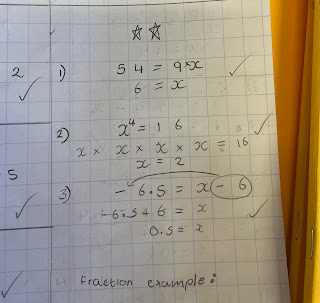 ☆☆
2
1) 54 = 9×x
6 = x
2) x⁴ = 16
x × x × x × x = 16
x = 2
5
3) -6.5 = x - 6
-6.5 + 6 = x
0.5 = x
fraction example: